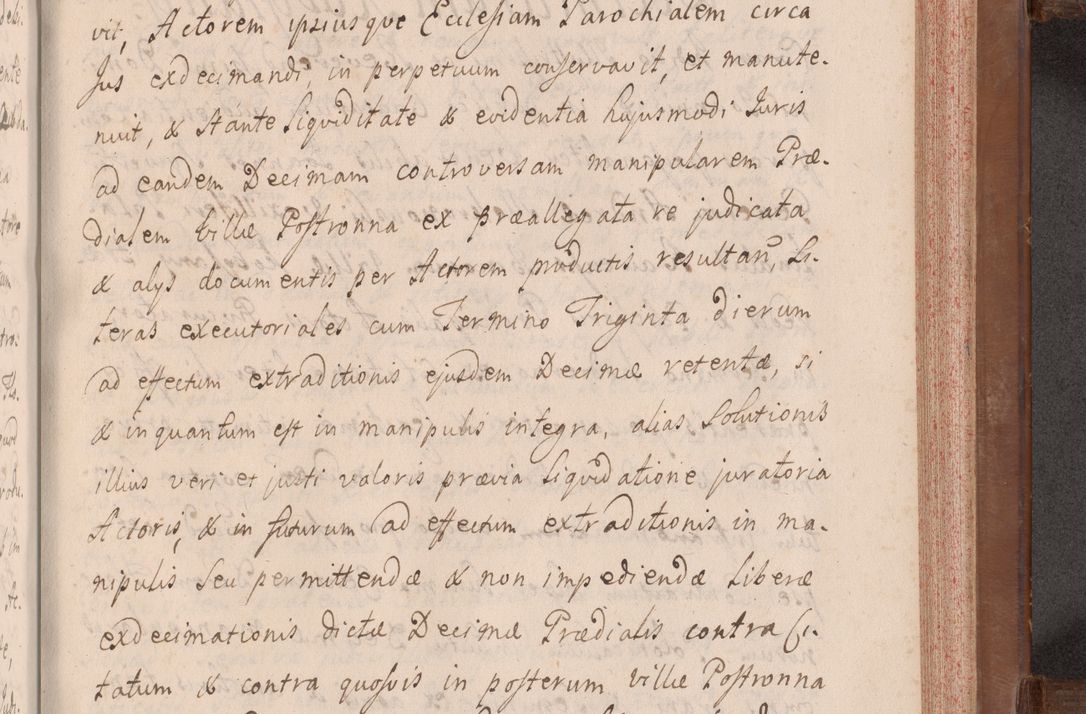 vit, Actorem ipsiusqve Ecclesiam Parochialem circa
Jus exdecimandi, in perpetuum conservavit, et manute-
nuit, & stante liqviditate & evidentia hujusmodi Juris
ad eandem Decimam controversam manipularem Præ-
dialem villæ Postronna ex præallegata re judicata
& alys documentis per Actorem productis resultan, Li-
teras executoriales cum Termino Triginta dierum
ad effectum extraditionis ejusdem Decimæ retentæ, si
& inquantum est in manipulis integra, alias Solutionis
illius veri et justi valoris prævia liqvidatione juratoria
Actoris, & in futurum ad effectum extraditionis in ma-
nipulis seu permittendæ & non impediendæ liberæ
exdecimationis dictæ Decimæ Prædialis contra Ci-
tatum & contra quosvis in posterum villæ Postronna